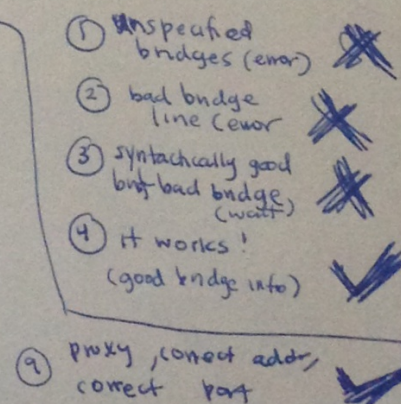 ① unspecified
bridges (error)
② bad bridge
line (error
③ syntachically good
but bad bridge
(wait)
④ it works!
(good bridge info)
⑨ proxy, correct addr,
correct port